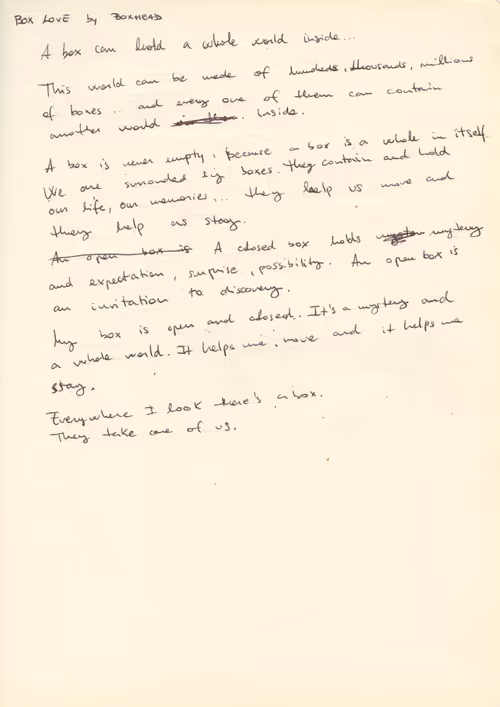 BOX LOVE by BOXHEAD
A box can hold a whole world inside...
This world can be made of hundreds, thousands, millions
of boxes... and every one of them can contain
another world inside.
A box is never empty, because a box is a whole in itself.
We are surrounded by boxes. They contain and hold
our life, our memories... they help us move and
they help us stay.
An open box is A closed box holds mystery
and expectation, surprise, possibility. An open box is
an invitation to discovery.
My box is open and closed. It's a mystery and
a whole world. It helps me move and it helps me
stay.
Everywhere I look there's a box.
They take care of us.